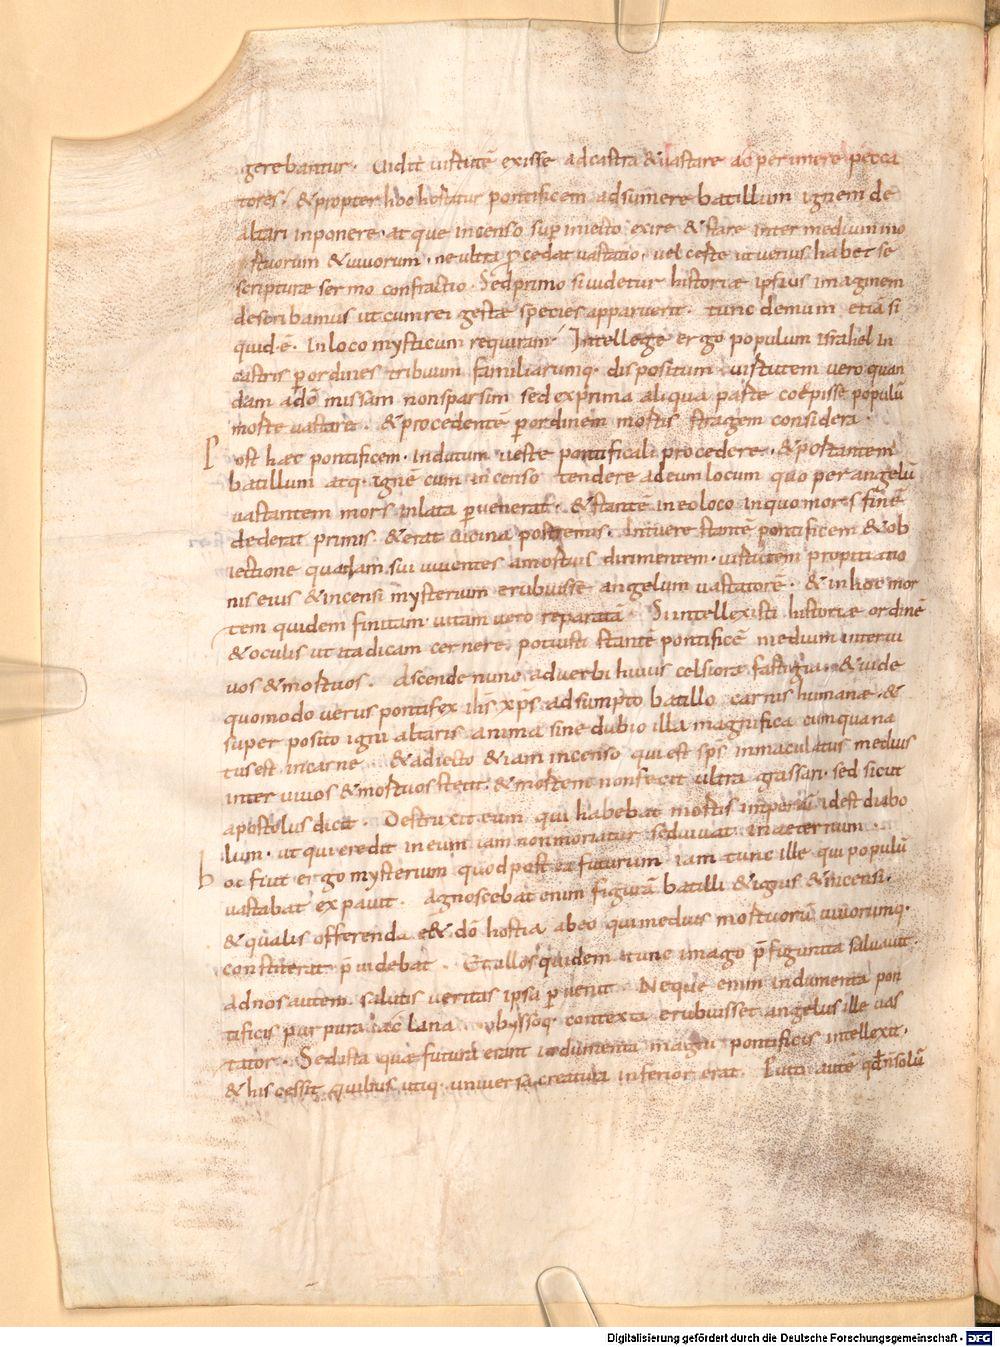 gerebantur. Uidit uirtutē exisse ad castra & uastare ac perimere pecca
tores. & propter hoc hortatur pontificem adsumere batillum ignem de
altari inponere. atque incenso sup iniecto exire & stare inter medium mo
rtuorum & uiuorum. ne ultra ꝓcedat uastatio. uel certe ut uerius habet se
scripturæ sermo confractio. Sed primo si uidetur historiæ ipsius imaginem
describamus ut cum rei gestæ species apparuerit. tunc demum etiā si
quid ē. In loco mysticum requiram. Intellege ergo populum israhel in
castris ꝑ ordines tribuum familiarumq. dispositum. uirtutem uero quan
dam a dō missam non sparsim sed ex prima aliqua parte coepisse populū
morte uastare. & procedentē ꝑ ordinem mortis stragem considera.
Post hæc pontificem indutum ueste pontificali procedere. & portantem
batillum atq. ignē cum incenso tendere ad eum locum quo per angelū
uastantem mors inlata ꝑuenerat. & stantē in eo loco in quo mors finē
dederat primis. & erat uicina postremis. Intuere stantē pontificem & ob
iectione quadam sui uiuentes a mortuis dirimentem. uirtutem propitiatio
nis eius & incensi mysterium erubuisse angelum uastatorē. & in hoc mor
tem quidem finitam uitam uero reparatā. Si intellexisti historiæ ordinē
& oculis ut ita dicam cernere potuisti stantē pontificē medium inter ui
uos & mortuos. Ascende nunc ad uerbi huius celsiora fastigia. & uide
quomodo uerus pontifex ihs xps adsumpto batillo carnis humanæ. &
super posito igni altaris anima sine dubio illa magnifica cum qua na
tus est in carne. & adiecto & iam incenso qui est sps inmaculatus medius
inter uiuos & mortuos stetit. & mortem non fecit ultra grassari. sed sicut
apostolus dicit. Destruxit eum qui habebat mortis imperiū id est diabo
lum. ut qui credit in eum iam non moriatur sed uiuat in aeternum.
hoc fuit ergo mysterium quod post ea futurum iam tunc ille qui populū
uastabat expauit. Agnoscebat enim figurā batilli & ignis & incensi.
& qualis offerenda e& dō hostia ab eo qui medius mortuorū uiuorumq.
constiterit p̄uidebat. Et illos quidem tunc imago p̄figurata saluauit.
ad nos autem salutis ueritas ipsa ꝑuenit. Neque enim indumenta pon
tificis purpura ac lana byssoq. contexta erubuisset angelus ille uas
tator. Sed ista quæ futura erant indumenta magni pontificis intellexit.
& his cessit quibus utiq. uniuersa creatura inferior erat. Puto autē qđ n solū
Digitalisierung gefördert durch die Deutsche Forschungsgemeinschaft - DFG